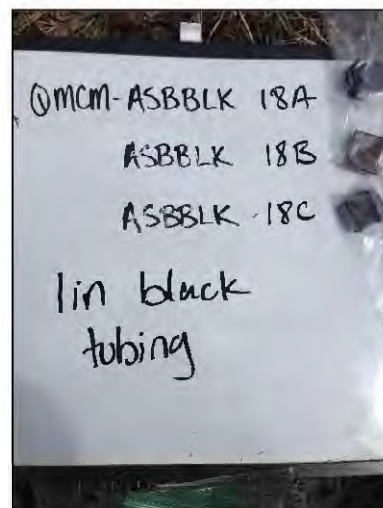 QMCM-ASBBLK 18A
ASBBLK 18B
ASBBLK-18C
1in black
tubing